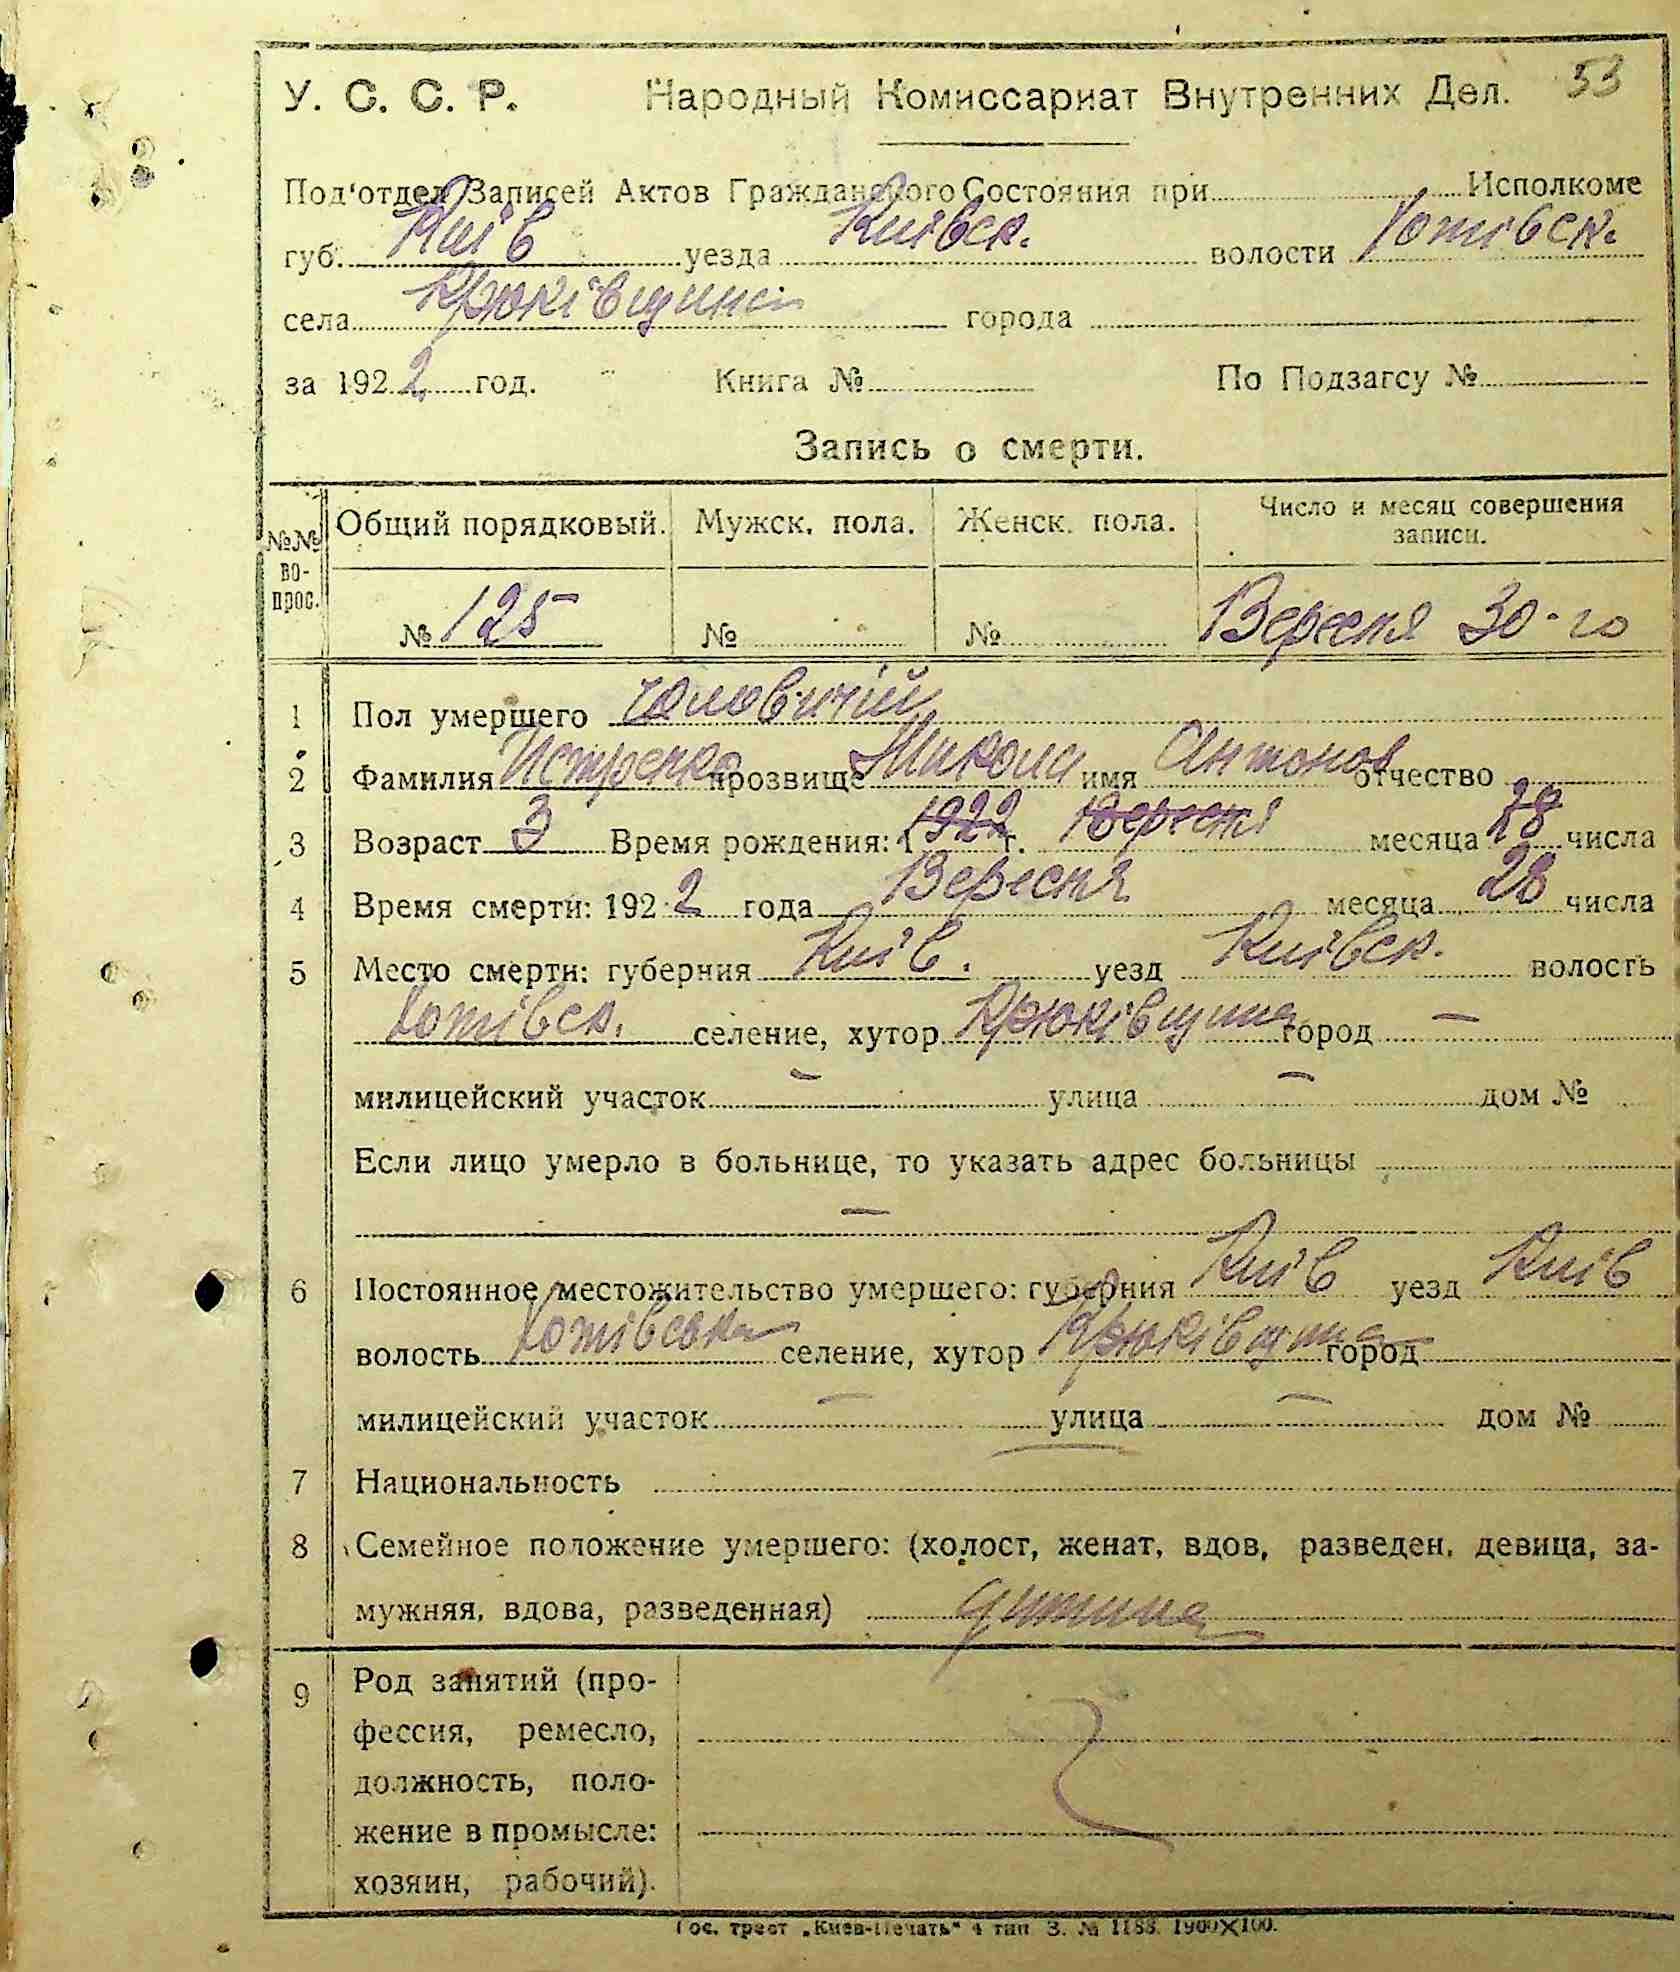 У. С. С. Р. Народный Комиссариат Внутренних Дел. 53
Под'отдел Записей Актов Гражданского Состояния при Исполкоме
губ. Київ уезда Київск. волости Хотівськ.
села Крюківщина города
за 1922 год. Книга № По Подзагсу №
Запись о смерти.
№№ вопрос. Общий порядковый. Мужск. пола. Женск. пола. Число и месяц совершения записи.
№ 125 № № Вересня 30-го
1 Пол умершего чоловичій
2 Фамилия прозвище Микола имя Антонов отчество
3 Возраст 3 Время рождения: 1922 г. Вересня месяца 28 числа
4 Время смерти: 1922 года Вересня месяца 28 числа
5 Место смерти: губерния Київ. уезд Київск. волость
Хотівск. селение, хутор Крюківщина город —
милицейский участок — улица — дом №
Если лицо умерло в больнице, то указать адрес больницы
—
6 Постоянное местожительство умершего: губерния Київ уезд Київ
волость Хотівська селение, хутор Крюківщина город
милицейский участок — улица — дом №
7 Национальность
8 Семейное положение умершего: (холост, женат, вдов, разведен, девица, за-
мужняя, вдова, разведенная) дитина
9 Род занятий (про-
фессия, ремесло,
должность, поло-
жение в промысле:
хозяин, рабочий).
Гос. трест „Киев-Печать" 4 тип З. № 1188. 1900×100.